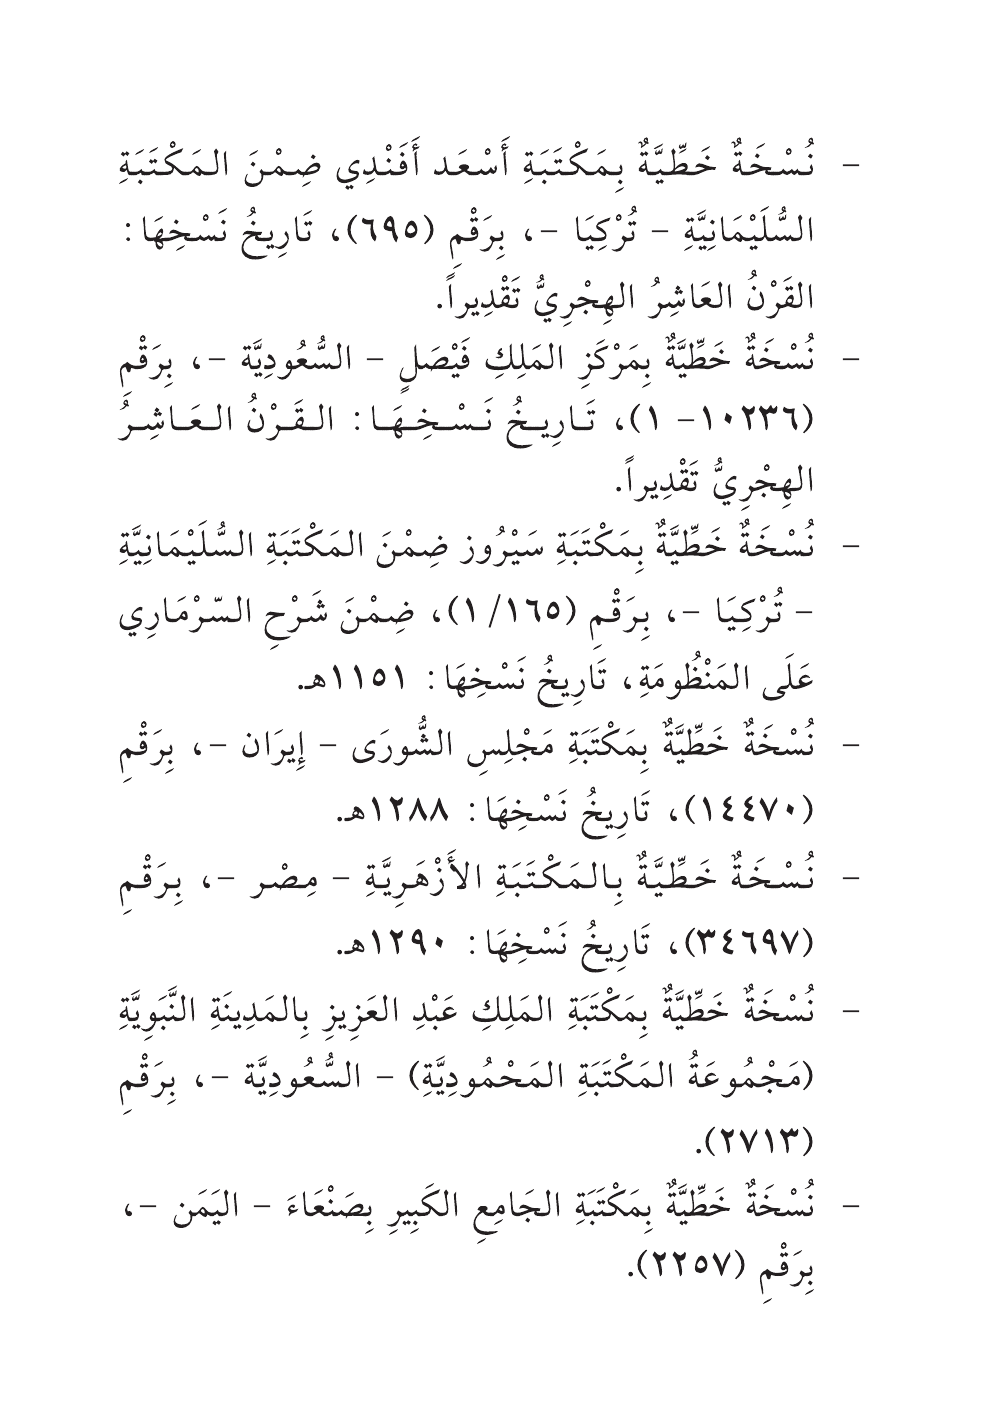 - نُسْخَةٌ خَطِّيَّةٌ بِمَكْتَبَةِ أَسْعَد أَفَنْدِي ضِمْنَ المَكْتَبَةِ
السُّلَيْمَانِيَّةِ - تُرْكِيَا -، بِرَقْمِ (٦٩٥)، تَارِيخُ نَسْخِهَا:
القَرْنُ العَاشِرُ الهِجْرِيُّ تَقْدِيراً.
- نُسْخَةٌ خَطِّيَّةٌ بِمَرْكَزِ المَلِكِ فَيْصَلٍ - السُّعُودِيَّة -، بِرَقْمِ
(١٠٢٣٦- ١)، تَارِيخُ نَسْخِهَا: القَرْنُ العَاشِرُ
الهِجْرِيُّ تَقْدِيراً.
- نُسْخَةٌ خَطِّيَّةٌ بِمَكْتَبَةِ سَيْرُوز ضِمْنَ المَكْتَبَةِ السُّلَيْمَانِيَّةِ
- تُرْكِيَا -، بِرَقْمِ (١٦٥/ ١)، ضِمْنَ شَرْحِ السّرْمَارِي
عَلَى المَنْظُومَةِ، تَارِيخُ نَسْخِهَا: ١١٥١هـ.
- نُسْخَةٌ خَطِّيَّةٌ بِمَكْتَبَةِ مَجْلِسِ الشُّورَى - إِيرَان -، بِرَقْمِ
(١٤٤٧٠)، تَارِيخُ نَسْخِهَا: ١٢٨٨هـ.
- نُسْخَةٌ خَطِّيَّةٌ بِالمَكْتَبَةِ الأَزْهَرِيَّةِ - مِصْر -، بِرَقْمِ
(٣٤٦٩٧)، تَارِيخُ نَسْخِهَا: ١٢٩٠هـ.
- نُسْخَةٌ خَطِّيَّةٌ بِمَكْتَبَةِ المَلِكِ عَبْدِ العَزِيزِ بِالمَدِينَةِ النَّبَوِيَّةِ
(مَجْمُوعَةُ المَكْتَبَةِ المَحْمُودِيَّةِ) - السُّعُودِيَّة -، بِرَقْمِ
(٢٧١٣).
- نُسْخَةٌ خَطِّيَّةٌ بِمَكْتَبَةِ الجَامِعِ الكَبِيرِ بِصَنْعَاءَ - اليَمَن -،
بِرَقْمِ (٢٢٥٧).